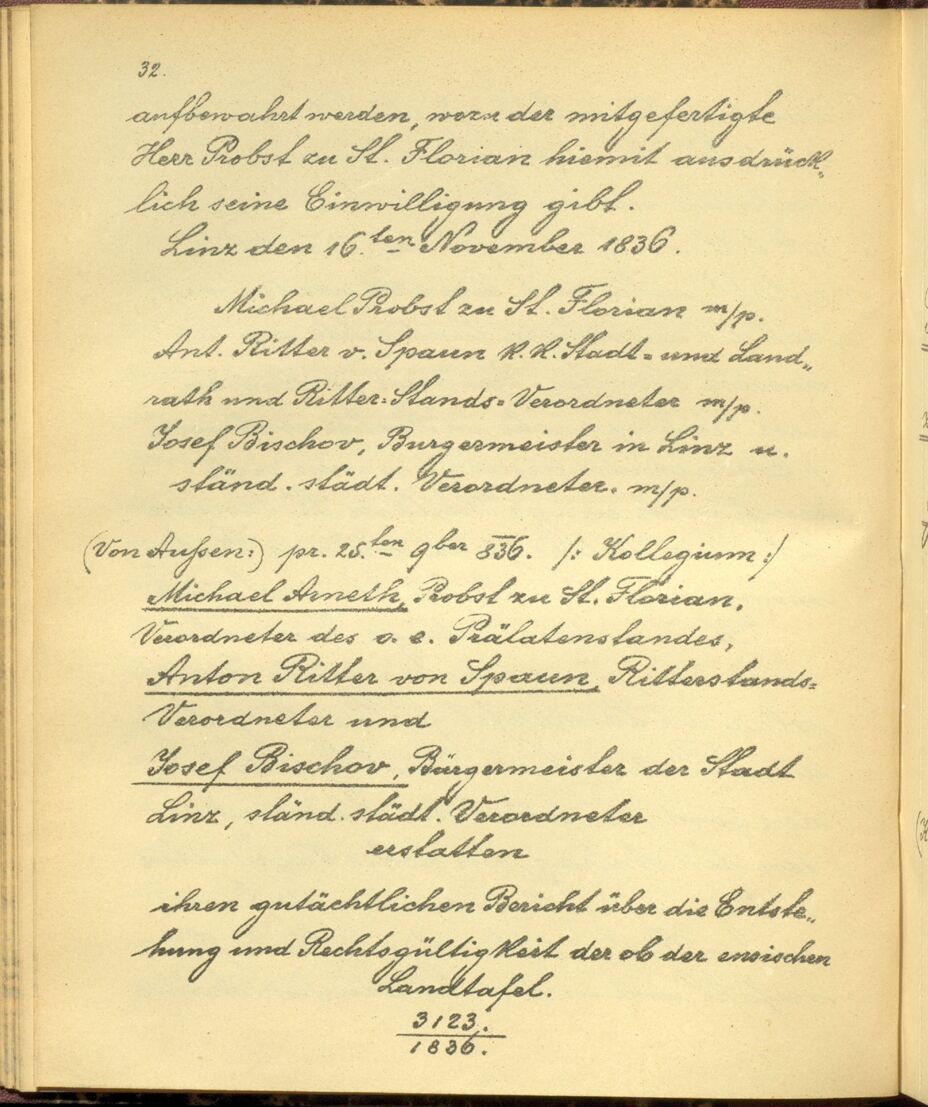 32.
aufbewahrt werden, wozu der mitgefertigte
Herr Probst zu St. Florian hiemit ausdrück„
lich seine Einwilligung gibt.
Linz den 16.ten November 1836.
Michael Probst zu St. Florian m/p.
Ant. Ritter v. Spaun k.k. Stadt= und Land„
rath und Ritter=Stands=Verordneter m/p.
Josef Bischov, Burgermeister in Linz u.
ständ. städt. Verordneter. m/p.
(Von Außen:) pr. 25.ten 9ber 836. /: Kollegium :/
Michael Arneth, Probst zu St. Florian,
Verordneter des o. e. Prälatenstandes,
Anton Ritter von Spaun, Ritterstands=
Verordneter und
Josef Bischov, Bürgermeister der Stadt
Linz, ständ. städt. Verordneter
erstatten
ihren gutächtlichen Bericht über die Entste„
hung und Rechtsgültigkeit der ob der ensischen
Landtafel.
3123.
1836.